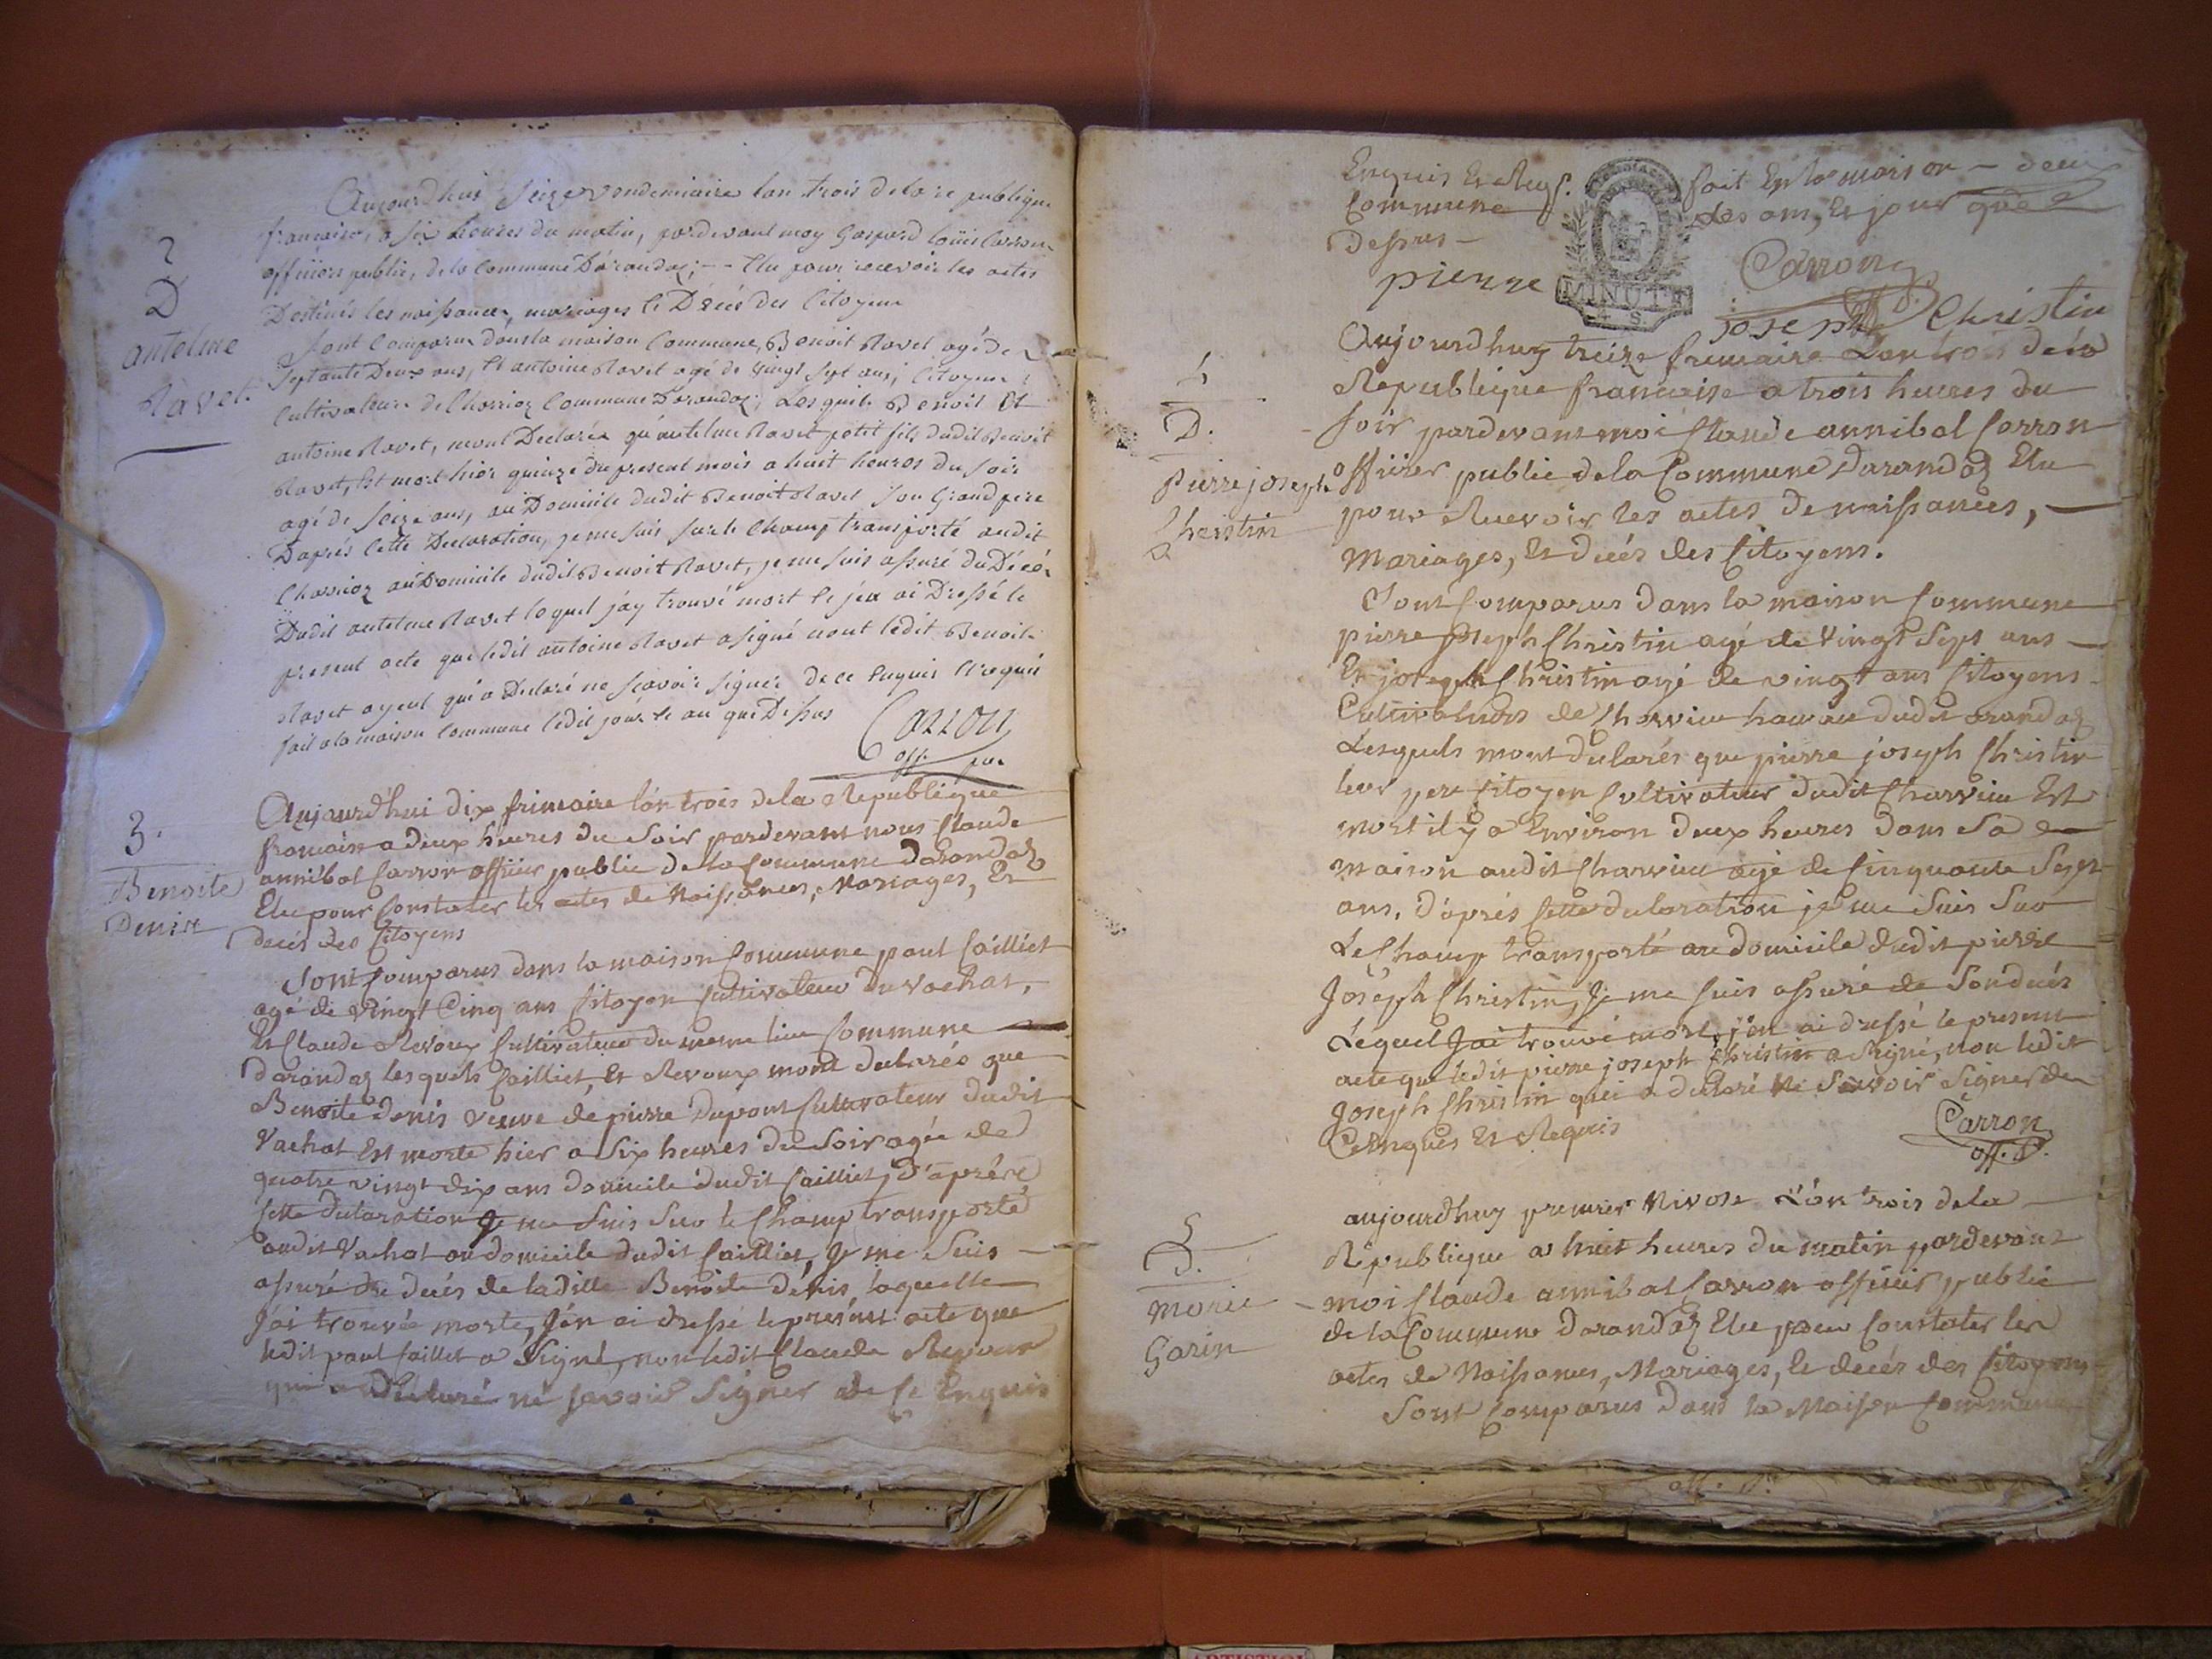 2
D
antelme
Ravet
Aujourdhui seize vendemiaire lan trois de la republique
francaise, a six heures du matin, pardevant moy Gaspard loüis Carron
officier public, de la Commune Darandaz; - - Elu pour recevoir les actes
Destinés les naissances, mariages le Décés des Citoyens
Sont Comparus dans la maison Commune, Benoit Ravet agé de
Septante Deux ans, Et antoine Ravet agé de vingt sept ans, Citoyens
Cultivateurs de Charvioz Commune Darandaz; Lesquels Benoit Et
antoine Ravet, mont Declarés qu'antelme Ravet petit fils dudit Benoit
Ravet, Est mort hier quinze du present mois a huit heures du soir
agé de seize ans, au Domicile dudit Benoit Ravet son Grand pere
D'aprés Cette Declaration, je me suis sur le Champ transporté audit
Charvioz au Domicile dudit Benoit Ravet, je me suis assuré du Décés
Dudit antelme Ravet loquel j'ay trouvé mort Et j'en ai Dressé le
present acte que ledit antoine Ravet a signé nont ledit Benoit
Ravet ayeul qui a Declaré ne scavoir signer de ce Enquis Et requis
fait a la maison Commune ledit jour Et an que Dessus
Carron
off. pu.
3.
Benoite
Denise
Aujourd'hui dix frimaire l'an trois de la Republique
francaise a deux heures du Soir pardevant nous Claude
annibal Carron officier public de la Commune Darandaz
Elu pour Constater les actes de Naissances, Mariages, Et
decés des Citoyens
Sont Comparus dans la maison Commune paul Cailliet
agé de vingt Cinq ans Citoyen Cultivateur du vachat,
Et Claude Revoux Cultivateur du meme lieu Commune
darandaz lesquels Cailliet, Et Revoux mont declarés que
Benoite denis veuve de pierre dupont Cultivateur dudit
Vachat Est morte hier a Six heures du Soir agée de
quatre vingt dix ans domicile dudit Cailliet, D'aprére
Cette declaration Je me Suis Sur le Champ transporté
audit Vachat au domicile dudit Cailliet, Je me Suis
assuré du decés de ladille Benoite dénis, laquelle
J'ai trouvée morte, J'en ai dressé le présent acte que
ledit paul Caillet a Signé, non ledit Claude Revoux
qui a Déclaré né Savoir Signer de Ce Enquis
Enquis Et Requ. fait En la maison - deux
Commune Les an, Et jour que
Dessus -
MINUTE
4 S.
Carron
off. p.
pierre joseph Christin
4
D.
Pierre joseph
Christin
Aujourdhuy treize frimaire L'an trois de la
Republique francaise a trois heures du
Soir pardevant moi Claude annibal Carron
officier public de la Commune Darandaz Elu
pour Recevoir les actes de naissances, -
Mariages, Et decés des Citoyens.
Sont Comparus dans la maison Commune
pierre joseph Christin agé de Vingt Sept ans -
Et joseph Christin agé de vingt ans Citoyens
Cultivateurs de Charvieu hameau dudit arandaz
Lesquels mont declarés que pierre joseph Christin
leur pere Citoyen Cultivateur dudit Charvieu Est
mort il y a Environ deux heures dans Sa
maison audit Charvieu agé de Cinquante Sept
ans, d'aprés Cette declaration je me Suis Sur
Le Champ transporté au domicile dudit pierre
Joseph Christin, Je me Suis assuré de Son décés
Lequel J'ai trouvé mort, j'en ai dressé le present
acte que ledit pierre joseph Christin a Signé, non ledit
Joseph Christin qui a declaré Ne Savoir Signer de
Ce Enquis Et Requis
Carron
off. P.
5
D.
Marie
Garin
aujourdhuy premier Nivose L'an trois de la
Republique a huit heures du matin pardevant
moi Claude annibal Carron officier public
de la Commune darandaz Elu pour Constater les
actes de Naissances, Mariages, Et decés des Citoyens
Sont Comparus dans la Maison Commune
off. P.